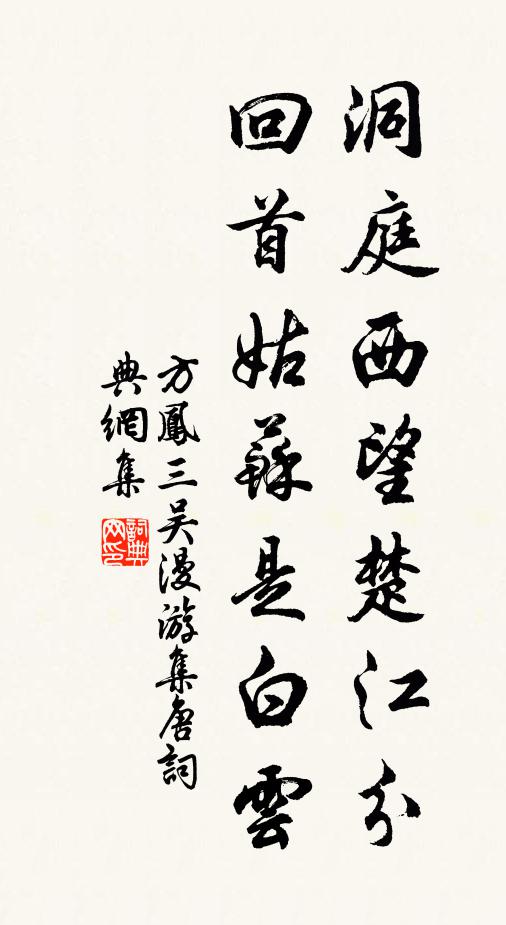 洞庭西望楚江分
回首姑蘇是白雲
方鳳三吴漫游集唐詞
典網集
詞典网印